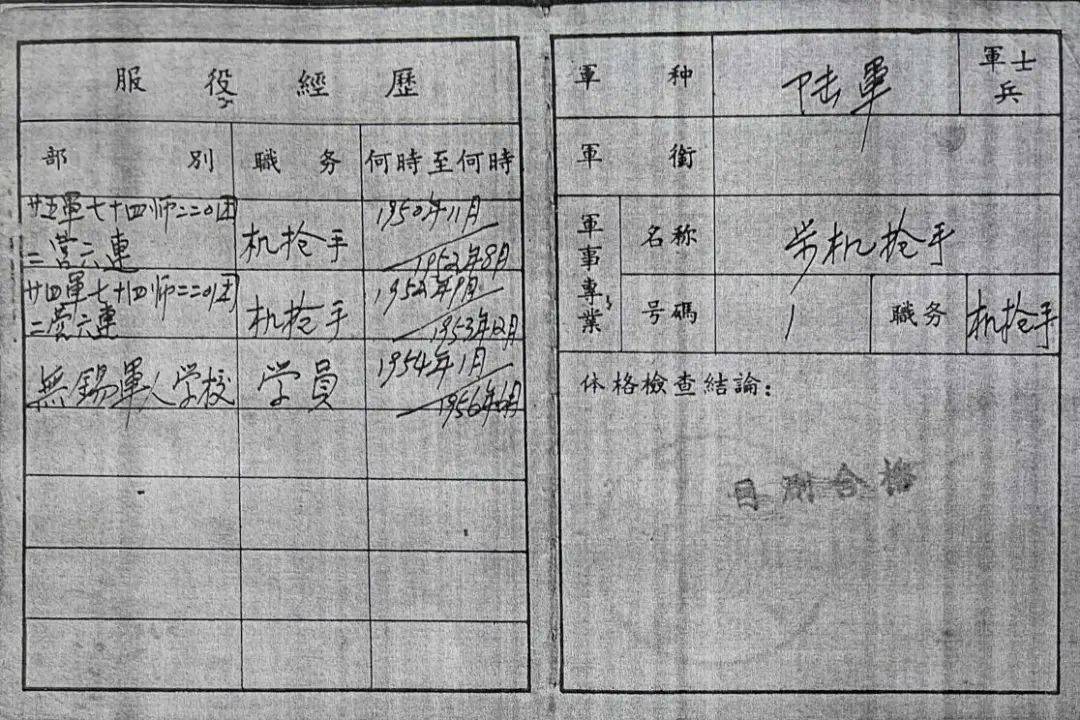 服役經歷
部別 職务 何時至何時
廿五軍七十四师二二〇团
二营六連
机抢手
1950年11月
1952年8月
廿四軍七十四师二二〇团
二营六連
机抢手
1952年9月
1953年12月
無錫軍人学校
学員
1954年1月
1956年6月
軍种 陆軍 軍士兵
軍銜
軍事專業
名称 机抢手
号碼 1 職务 机抢手
体格檢查結論：
目測合格